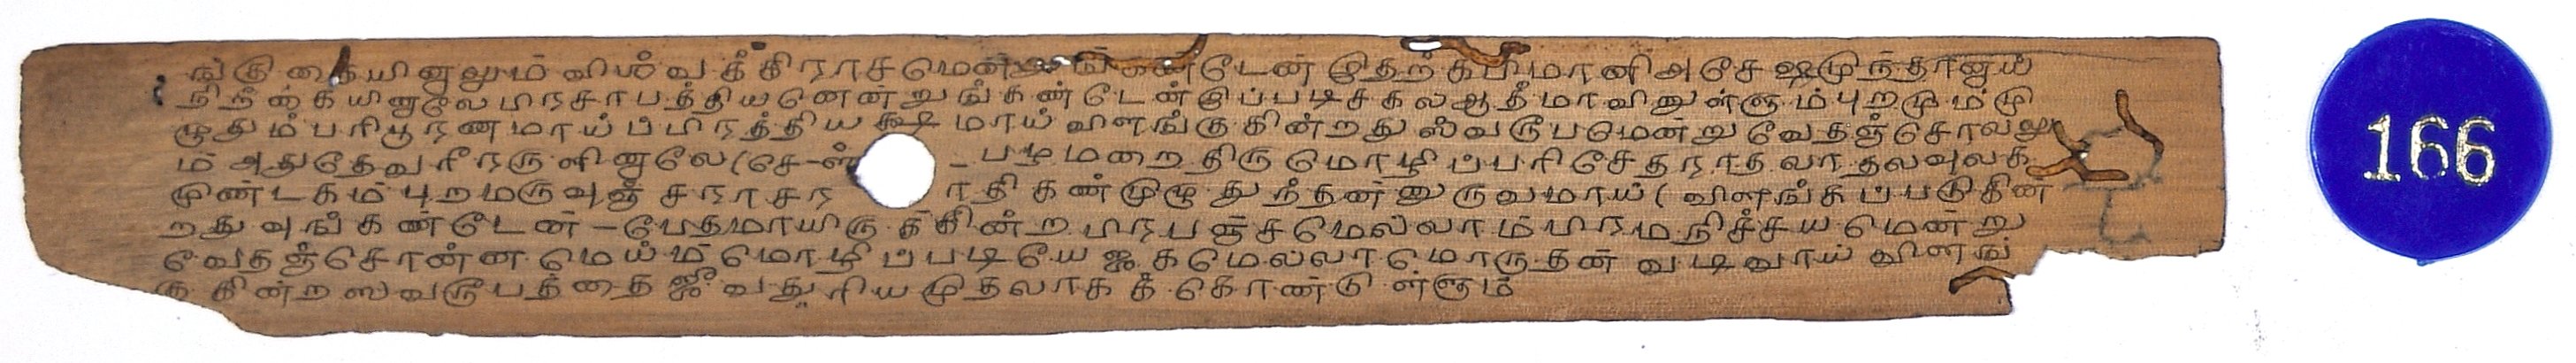 ங்குகையினாலும் விஸ்வக்கிராசமென்றுங் கண்டேன் இதற்கபிமானி அசேஷமுந்தானாய்
நிற்கையினாலே பிரசாபத்தியனென்றுங்கண்டேன் இப்படிச்சகல ஆத்மாவினுள்ளும்புறமும்மு
ழுதும்பரிபூரணமாய்ப்பிரத்தியக்ஷமாய் விளங்குகின்றது ஸ்வரூபமென்று வேதஞ்சொல்லு
ம் அதுதேவரீரருளினாலே
பழமறை திருமொழிப்பரிசே தராதலாதலவுலக
முண்டகம்புறமருவுஞ் சராசர ாதிகண்முழுதுந்தன்னுருவமாய் ( விளங்கப்படுகின்
றதுவுங்கண்டேன் - பேதமாயிருக்கின்ற பிரபஞ்சமெல்லாம் பிரமநிச்சயமென்று
வேதஞ்சொன்ன மெய்ம்மொழிப்படியே ஜகமெல்லாமொருதன் வடிவாய் விளங்
குகின்ற ஸ்வரூபத்தை ஜீவதுரியமுதலாகக்கொண்டுள்ளும்
166